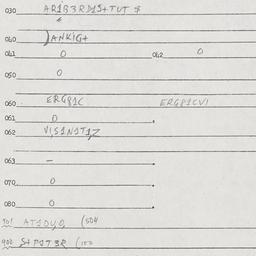 030 AR1B3RD1S+TUT $
040 )ANKIG+
041 0 042 0
050 0
060 ERGP1C ERGP1CVI
061 0
062 V1,S1N1T1,Z
063 -
070 0
080 0
901 (504
902 S+P1T3R (100